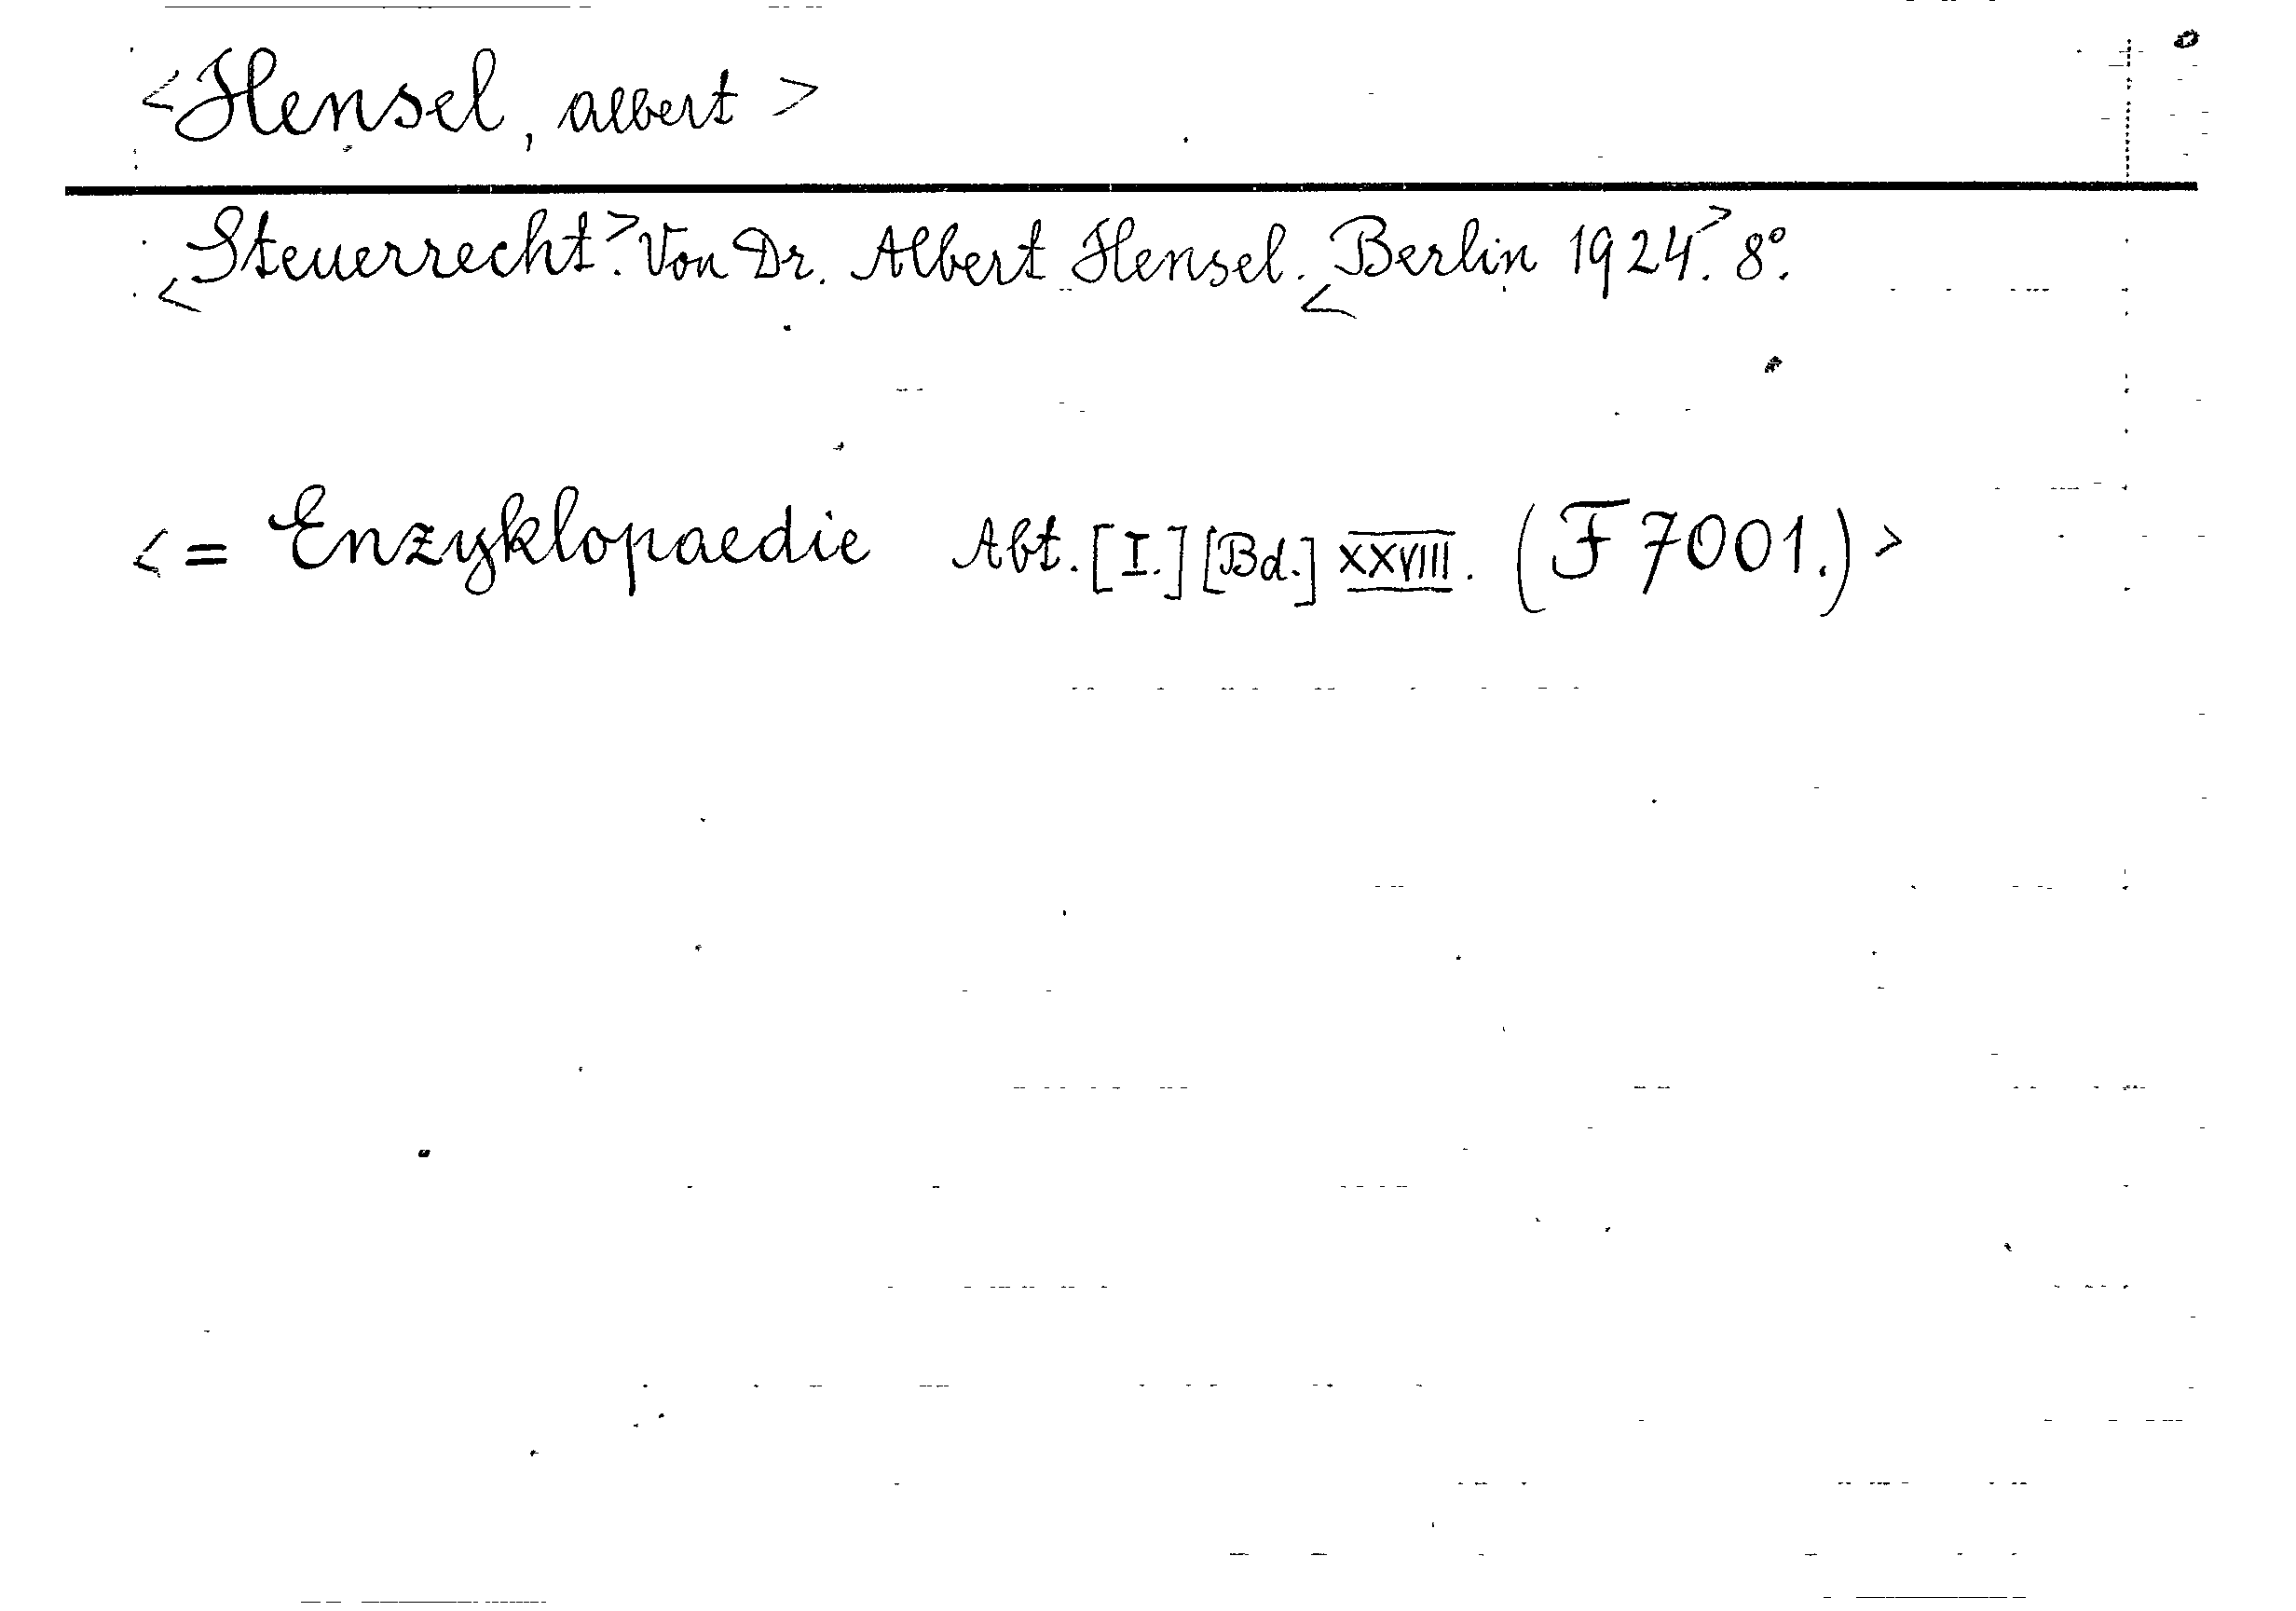 <Hensel, albert>
<Steuerrecht>. Von Dr. Albert Hensel. <Berlin 1924>. 8°.
<= Enzyklopaedie Abt. [I.] [Bd.] XXVIII. (F 7001.)>